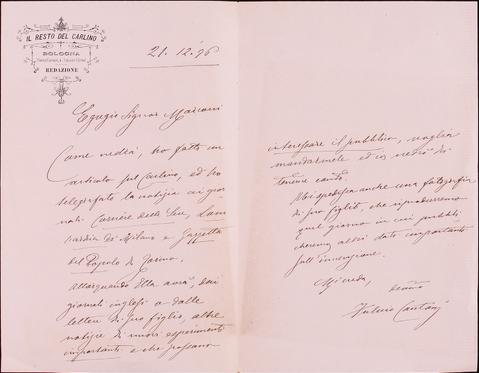 IL RESTO DEL CARLINO
BOLOGNA
REDAZIONE
21. 12. 96
Egregio Signor Marconi
Come vedrà, ho fatto un
articolo sul Carlino, ed ho
telegrafato la notizia ai gior
nali Corriere della Sera, Lom
bardia di Milano e Gazzetta
del Popolo di Torino.
Allorquando Ella avrà, dai
giornali inglesi o dalle
lettere di suo figlio, altre
notizie di nuovi esperimenti
importanti e che possano
interessare il pubblico, voglia
mandarmele ed io vedrò di
tenerne conto.
Mi spedisca anche una fotografia
di suo figlio, che riprodurremo
quel giorno in cui pubbli
cheremo altri dati importanti
sull'invenzione.
Mi creda,
Fulvio Cantoni